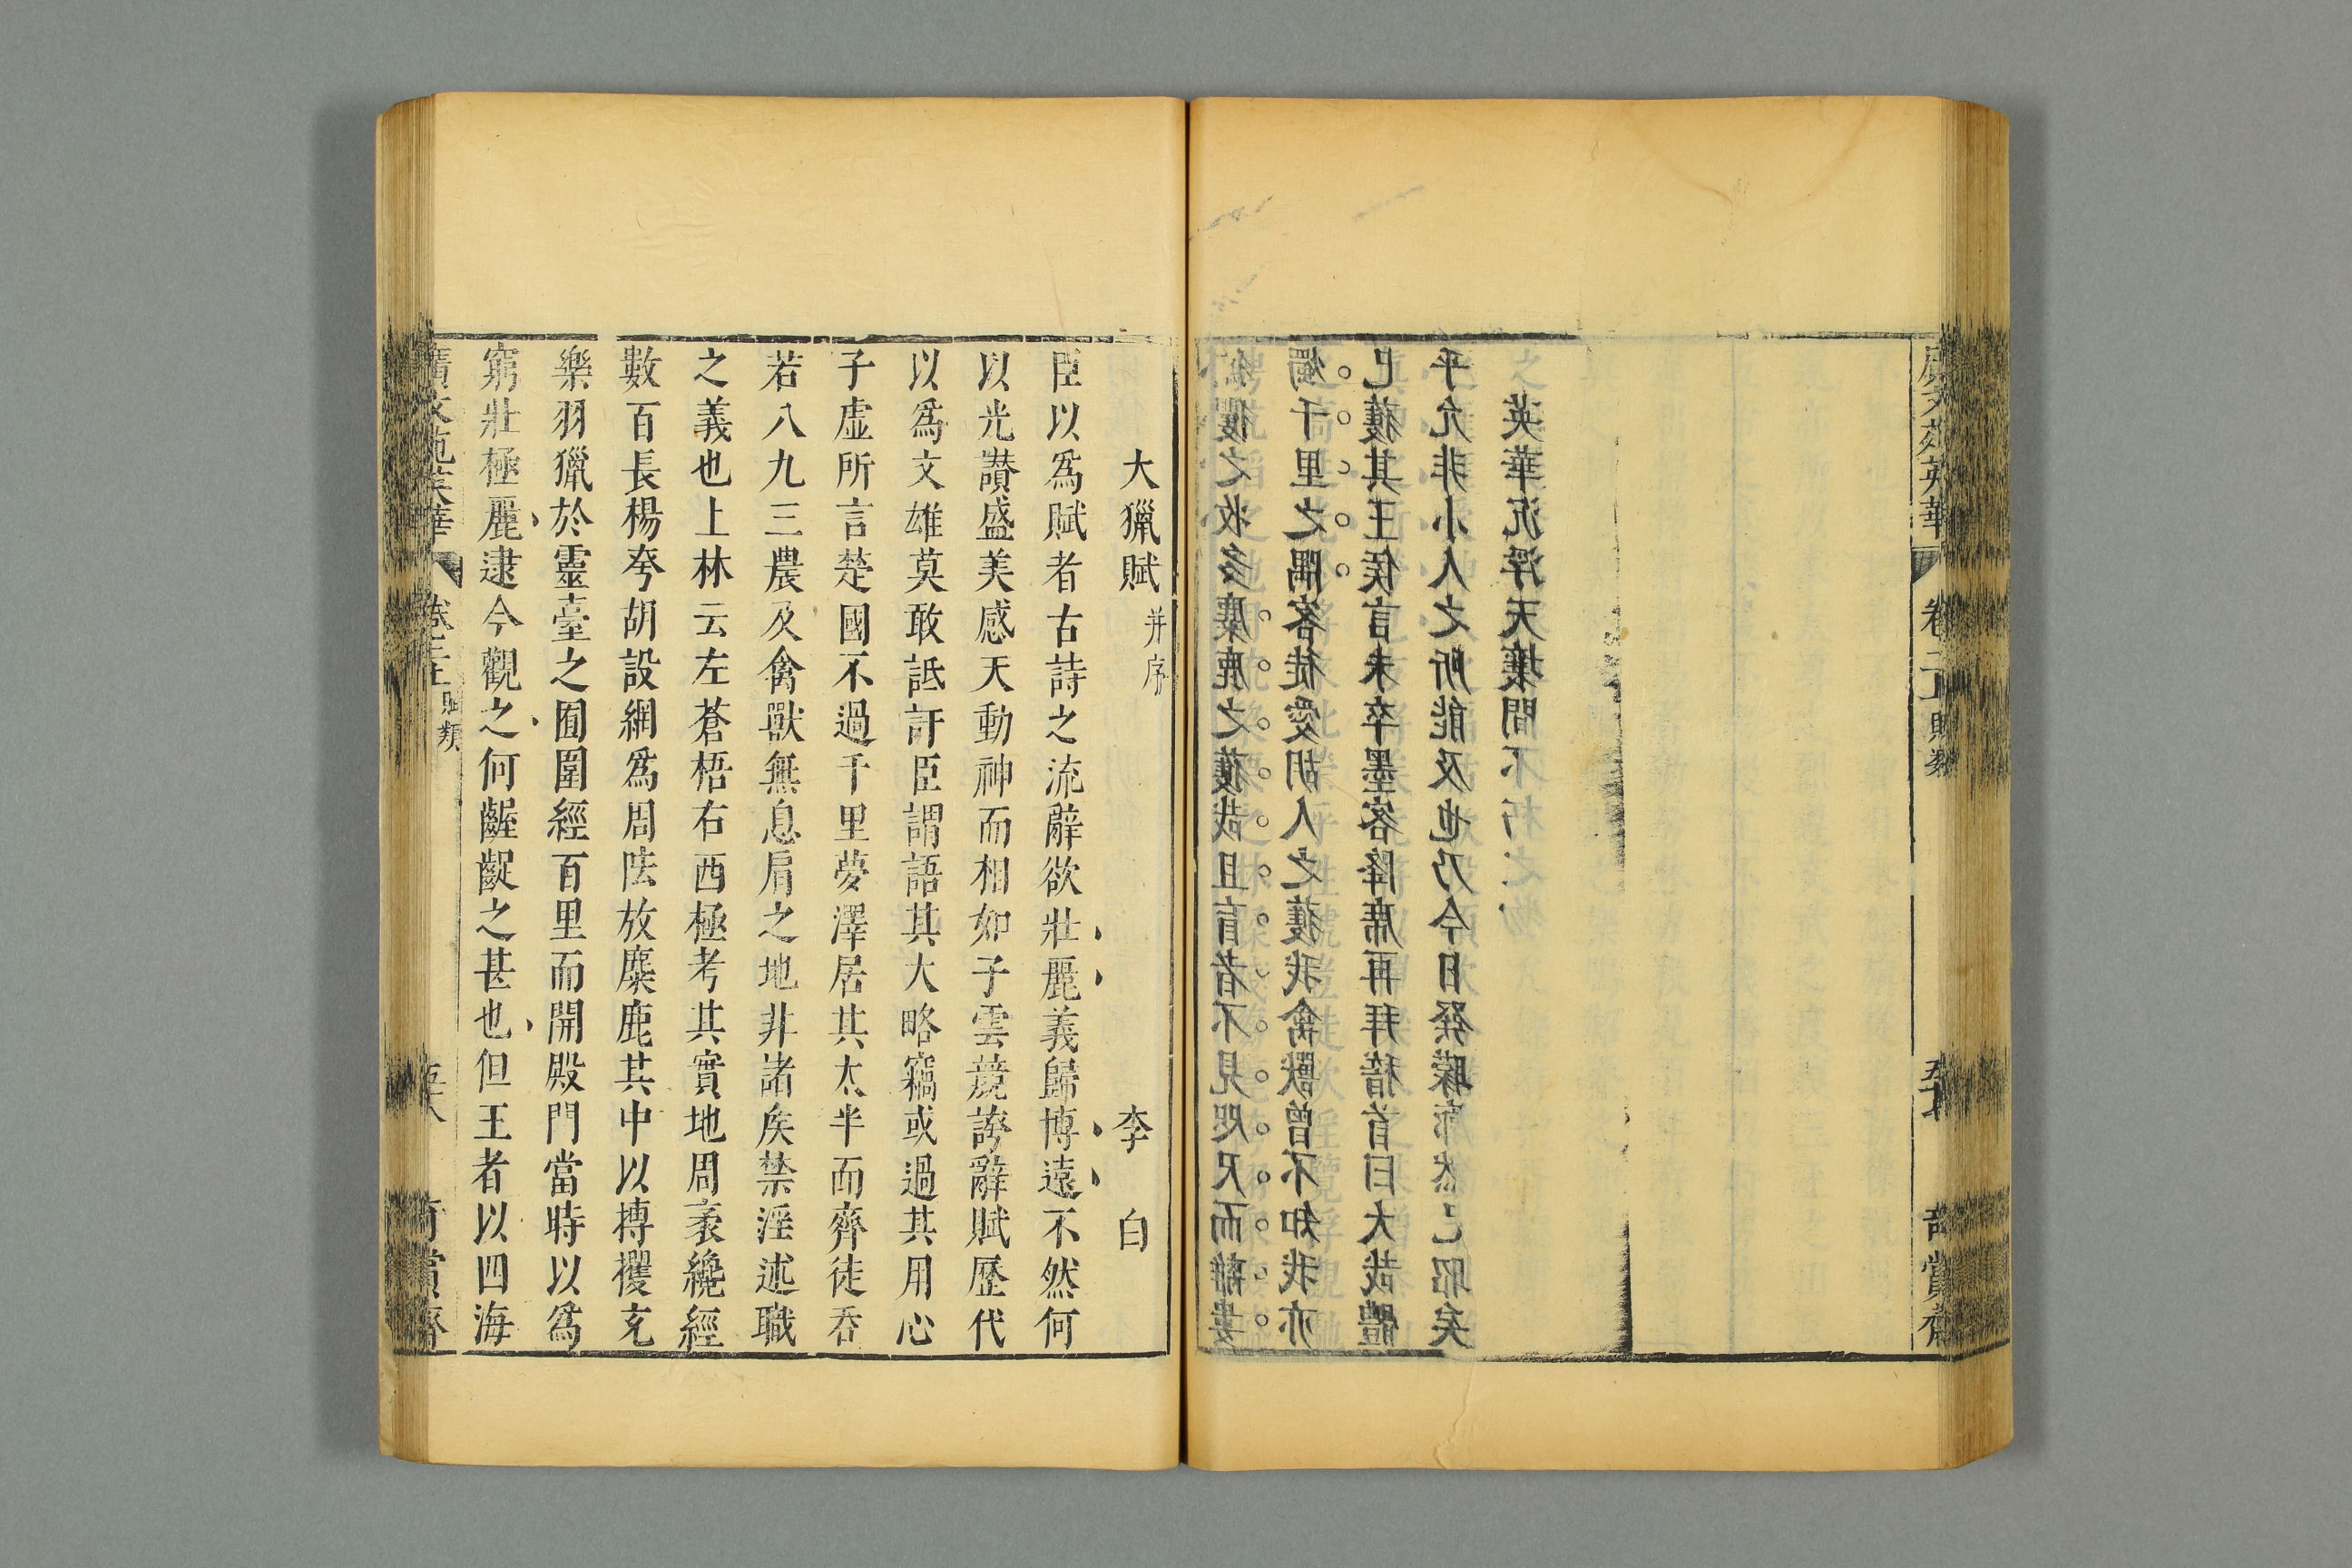 廣文苑英華 卷二五 賦類 奇賞齋
狖玃之收多麋鹿之獲哉且盲者不見咫尺而離婁
燭千里之隅客徒愛胡人之獲我禽獸曾不知我亦
已獲其王侯言未卒墨客降席再拜稽首曰大哉體
乎允非小人之所能及也乃今日發矇廓然已昭矣
英華沉浮天壤間不朽之物
大獵賦 并序 李白
臣以爲賦者古詩之流辭欲壯麗義歸博遠不然何
以光讚盛美感天動神而相如子雲競誇辭賦歷代
以爲文雄莫敢詆訐臣謂語其大略竊或過其用心
子虛所言楚國不過千里夢澤居其太半而齊徒吞
若八九三農及禽獸無息肩之地非諸矦禁淫述職
之義也上林云左蒼梧右西極考其實地周袤纔經
數百長楊夸胡設網爲周阹放麋鹿其中以搏攫充
樂羽獵於靈臺之囿圍經百里而開殿門當時以爲
窮壯極麗逮今觀之何齷齪之甚也但王者以四海
廣文苑英華 卷二五 賦類 奇賞齋